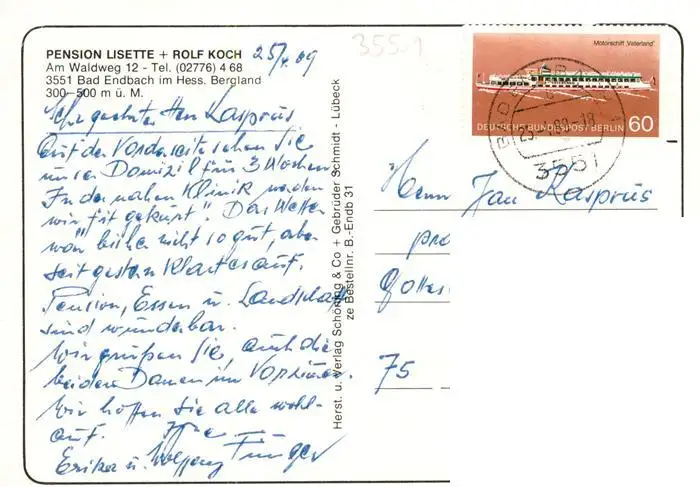 PENSION LISETTE + ROLF KOCH
Am Waldweg 12 - Tel. (02776) 4 68
3551 Bad Endbach im Hess. Bergland
300-500 m ü. M.
Sehr geehrter Herr Kasprüs
auf der Vorderseite sehen Sie
unser Domizil für 3 Wochen.
In der nahen Klinik werden
wir "fit gekurt". Das Wetter
war bisher nicht so gut, aber
seit gestern klart es auf.
Pension, Essen u. Landschaft
sind wunderbar.
Wir grüßen Sie, auch die
beiden Damen im Vorzimmer.
Wir hoffen Sie alle wohl-
auf. Ihre
Erika u. Wolfgang Funger
Herst. u. Verlag Schöning & Co + Gebrüder Schmidt - Lübeck
ze Bestellnr. B.-Endb 31
3551
Motorschiff „Vaterland"
DEUTSCHE BUNDESPOST BERLIN 60
3551
Herrn Jan Kasprüs
Gottes
75